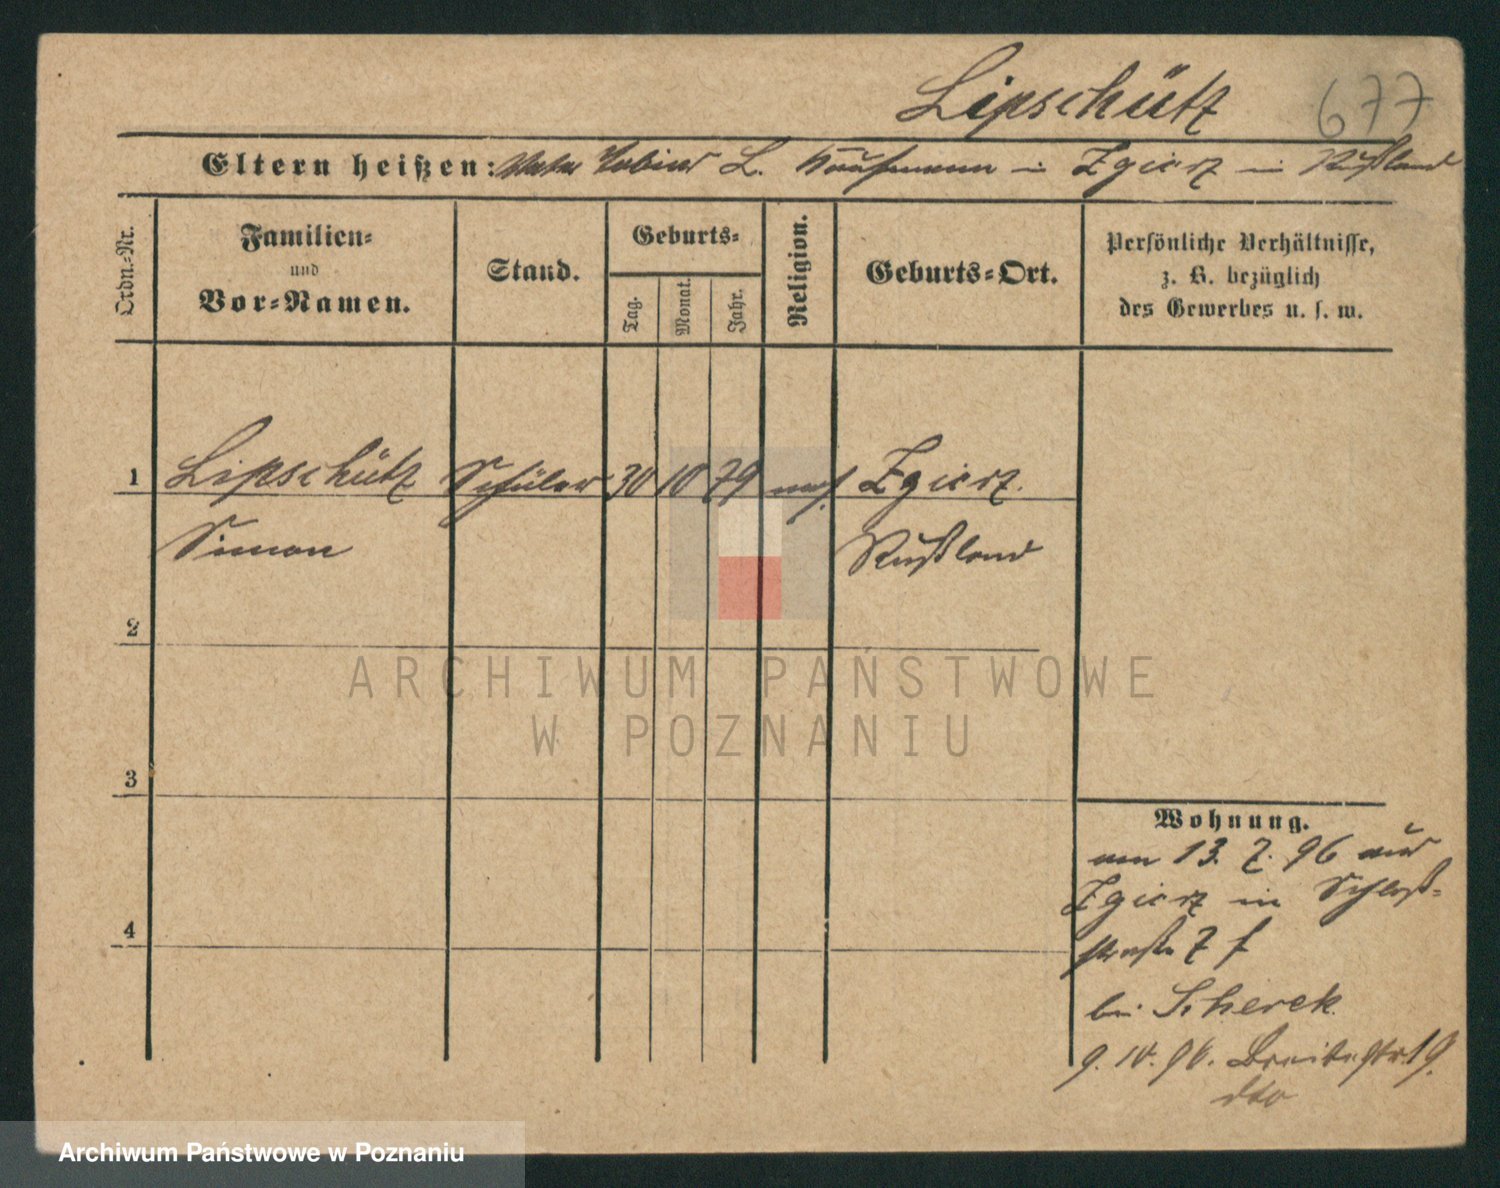 Lipschütz
677
Eltern heißen: Vater Tobias L. Kaufmann in Zgierz in Rußland
Ordn.-Nr.
Familien-
und
Vor-Namen.
Stand.
Geburts-
Tag.
Monat.
Jahr.
Religion.
Geburts-Ort.
Persönliche Verhältnisse,
z. B. bezüglich
des Gewerbes u. s. w.
1 Lipschütz Schüler 30 10 79 mos. Zgierz
Simon Rußland
2
3
4
Wohnung.
am 13. 7. 96 aus
Zgierz in Schloß-
straße 7
bei Scherek
9. 10. 96. Breitestr. 19.
dto
ARCHIWUM PAŃSTWOWE
W POZNANIU
Archiwum Państwowe w Poznaniu